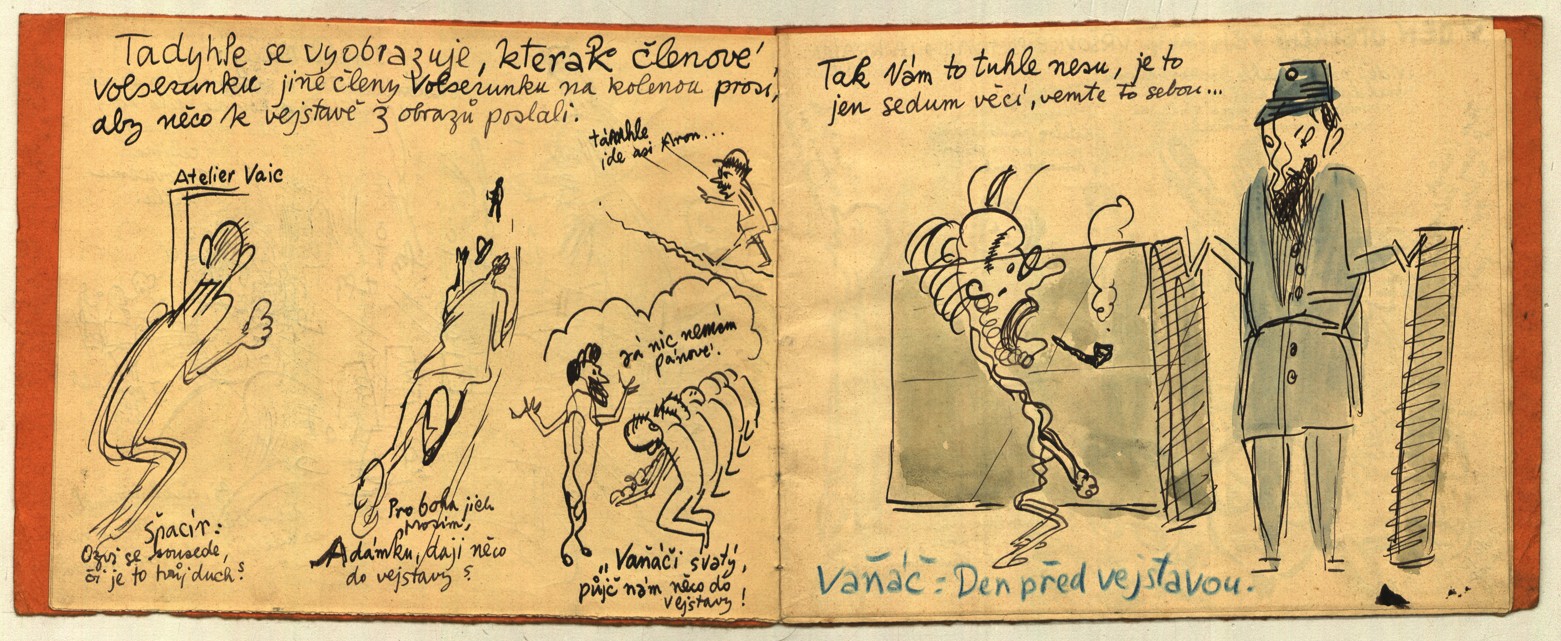 Tadyhle se vyobrazuje, kterak členové
Volserunku jiné členy Volserunku na kolenou prosí,
aby něco k vejstavě z obrazů poslali.
támhle
jde asi Aron...
Atelier Vaic
já nic nemám
pánové!
Špacír:
Ozvi se sousede,
či je to tvůj duch?
Pro boha jich
prosím,
Adámku, dají něco
do vejstavy?
„Vaňáči svatý,
půjč nám něco do
vejstavy!
Tak Vám to tuhle nesu, je to
jen sedum věcí, vemte to sebou...
Vaňáč: Den před vejstavou.